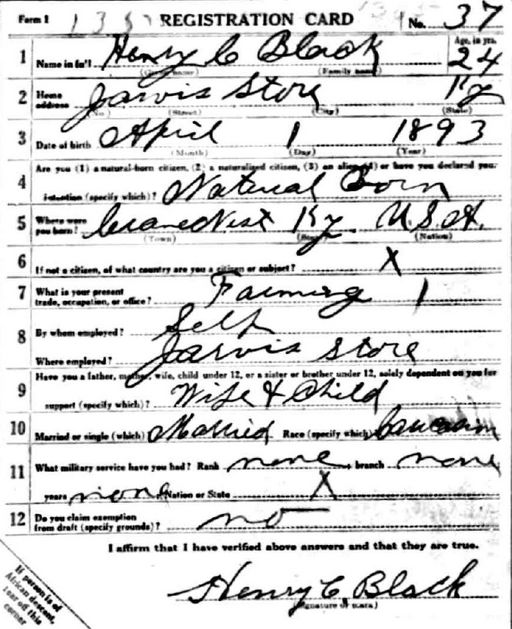 Form 1 REGISTRATION CARD No. 37
1 Name in full Henry C Black Age, in yrs. 24
(Given name) (Family name)
2 Home address Jarvis Store Ky
(No.) (Street) (City) (State)
3 Date of birth April 1 1893
(Month) (Day) (Year)
4 Are you (1) a natural-born citizen, (2) a naturalized citizen, (3) an alien, (4) or have you declared your
intention (specify which)? Natural Born
5 Where were you born? Cranes Nest Ky U.S.A.
(Town) (Nation)
6 If not a citizen, of what country are you a citizen or subject? X
7 What is your present trade, occupation, or office? Farming 1
8 By whom employed? Self
Where employed? Jarvis Store
9 Have you a father, mother, wife, child under 12, or a sister or brother under 12, solely dependent on you for
support (specify which)? Wife & Child
10 Married or single (which) Married Race (specify which) Caucasian
11 What military service have you had? Rank none, branch none
years none Nation or State X
12 Do you claim exemption from draft (specify grounds)? no
I affirm that I have verified above answers and that they are true.
Henry C, Black
If person is of
African descent,
tear off this
corner